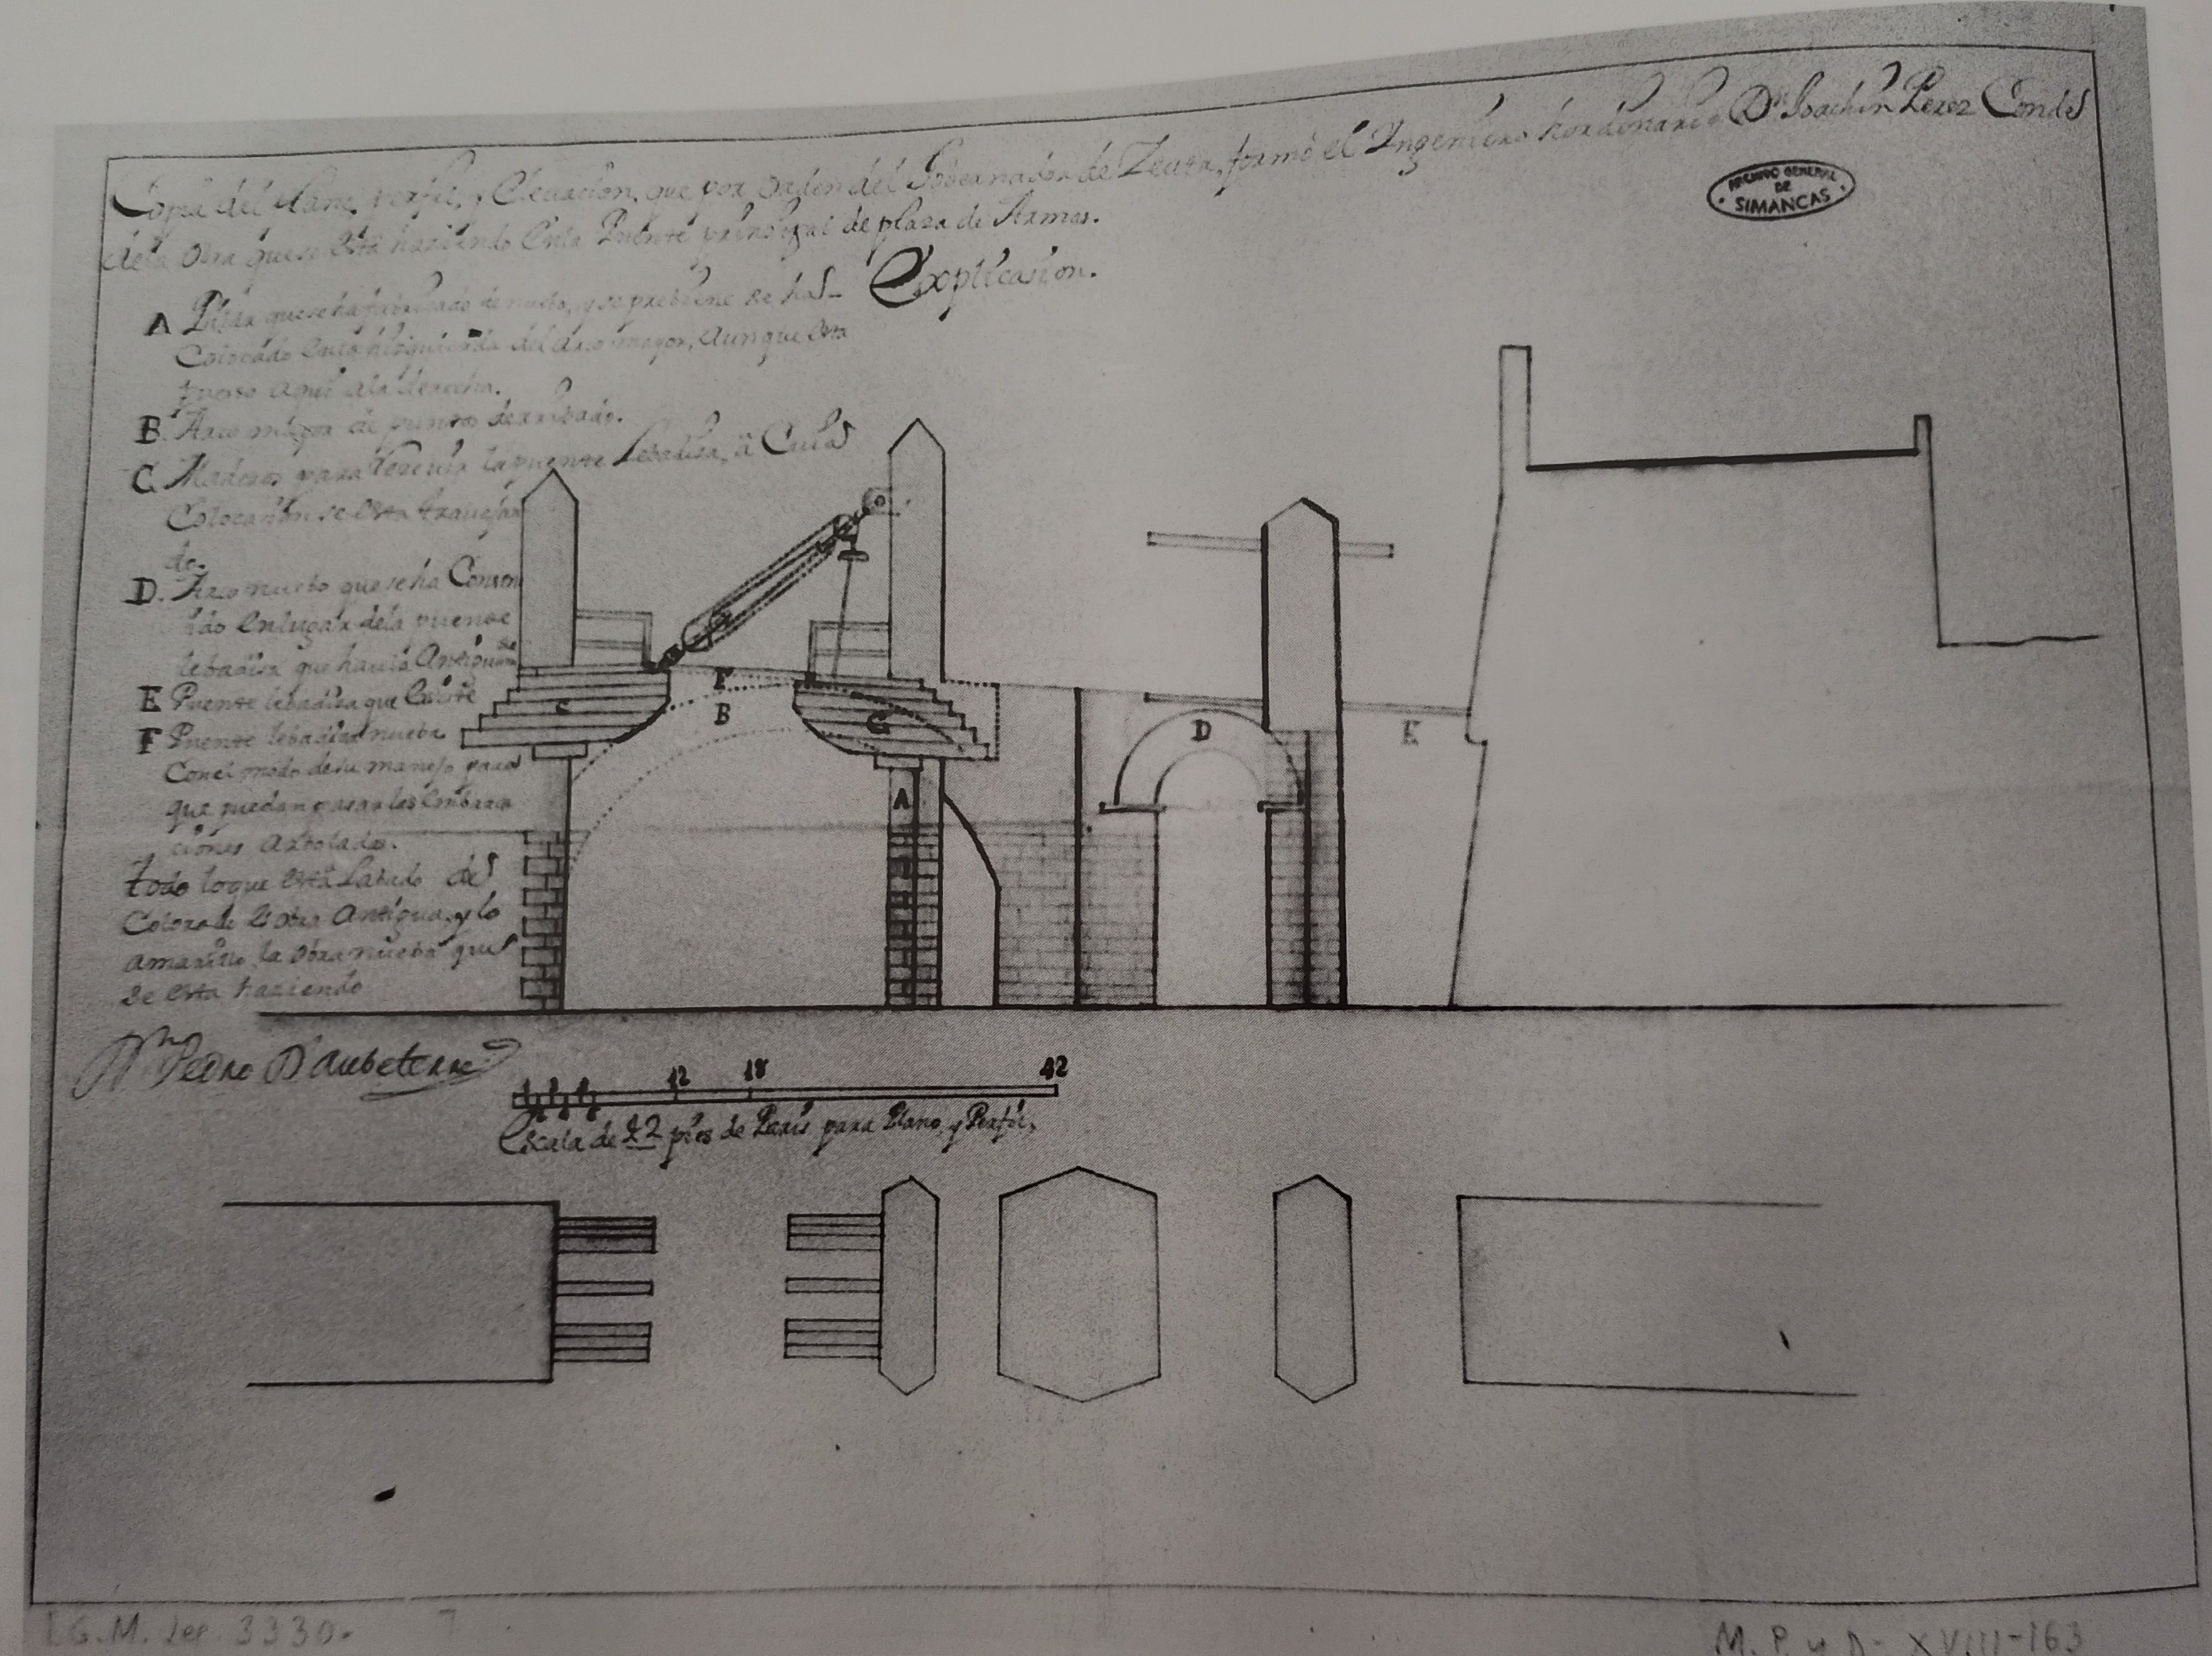 Copia del Plano, perfil, y Elevacion, que por orden del Governador de Zeuta, formó el Ingeniero hordinario Dn Joachin Perez Conde
de la Obra que se está haziendo en la Puente prinsipal de plaza de Armas.
ARCHIVO GENERAL
DE
SIMANCAS
Explicasion.
A Pilar que se ha fabricado de nuebo, y se prebiene se ha
Colocado en la hisquierda del Arco mayor, aunque esta
puesto aqui a la derecha.
B. Arco mayor de puntos derribado.
C. Maderos para la puente Lebadisa, à Cuia
Colocasion se esta travajan
do.
D. Arco nuebo que se ha Cons
en lugar de la puente
lebadisa que havia Antiguamte
E Puente lebadisa que Existe
F Puente lebadisa nueba
Con el modo de su manejo para
que puedan pasar las Embarca
ciones arboladas.
todo lo que está Labado de
Colorado es obra Antigua, y lo
amarillo la obra nueba que
se esta haziendo
F
C
B
G
D
E
A
Dn Pedro D'Aubeterre
1 3
2 4 6
12 18 42
Escala de 42 pies de Paris para Plano, y Perfil.
G.M. Leg. 3330. 7
M. P. y D- XVIII-163